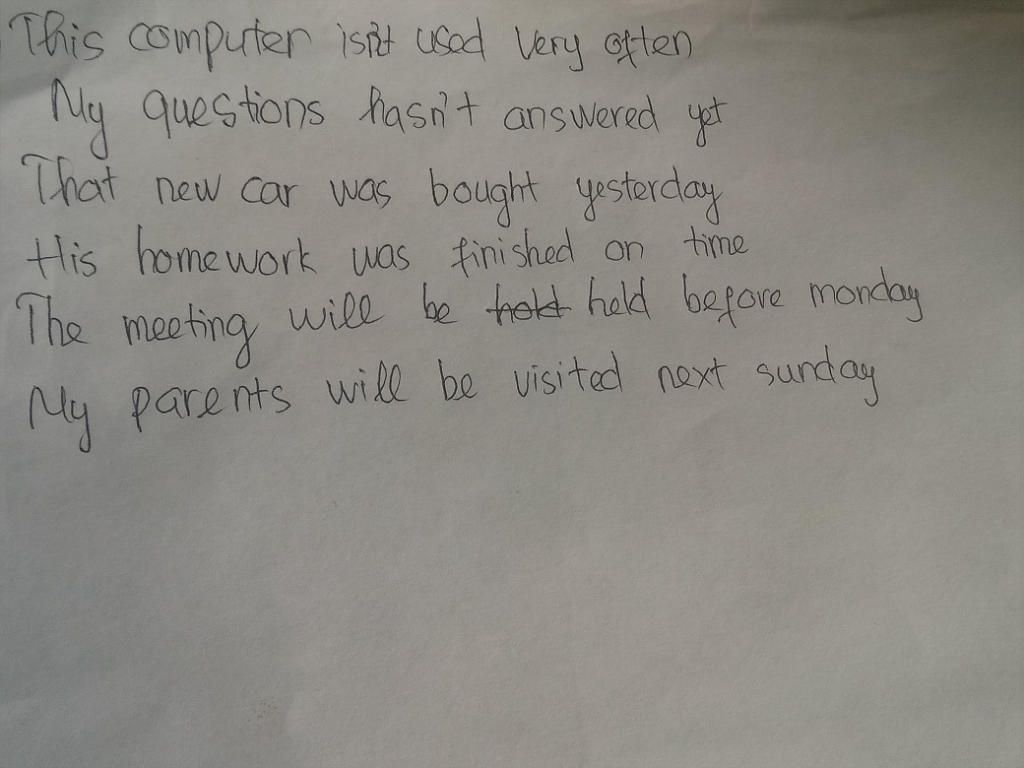 This computer isn't used very often
My questions hasn't answered yet
That new car was bought yesterday
His homework was finished on time
The meeting will be hold held before monday
My parents will be visited next sunday